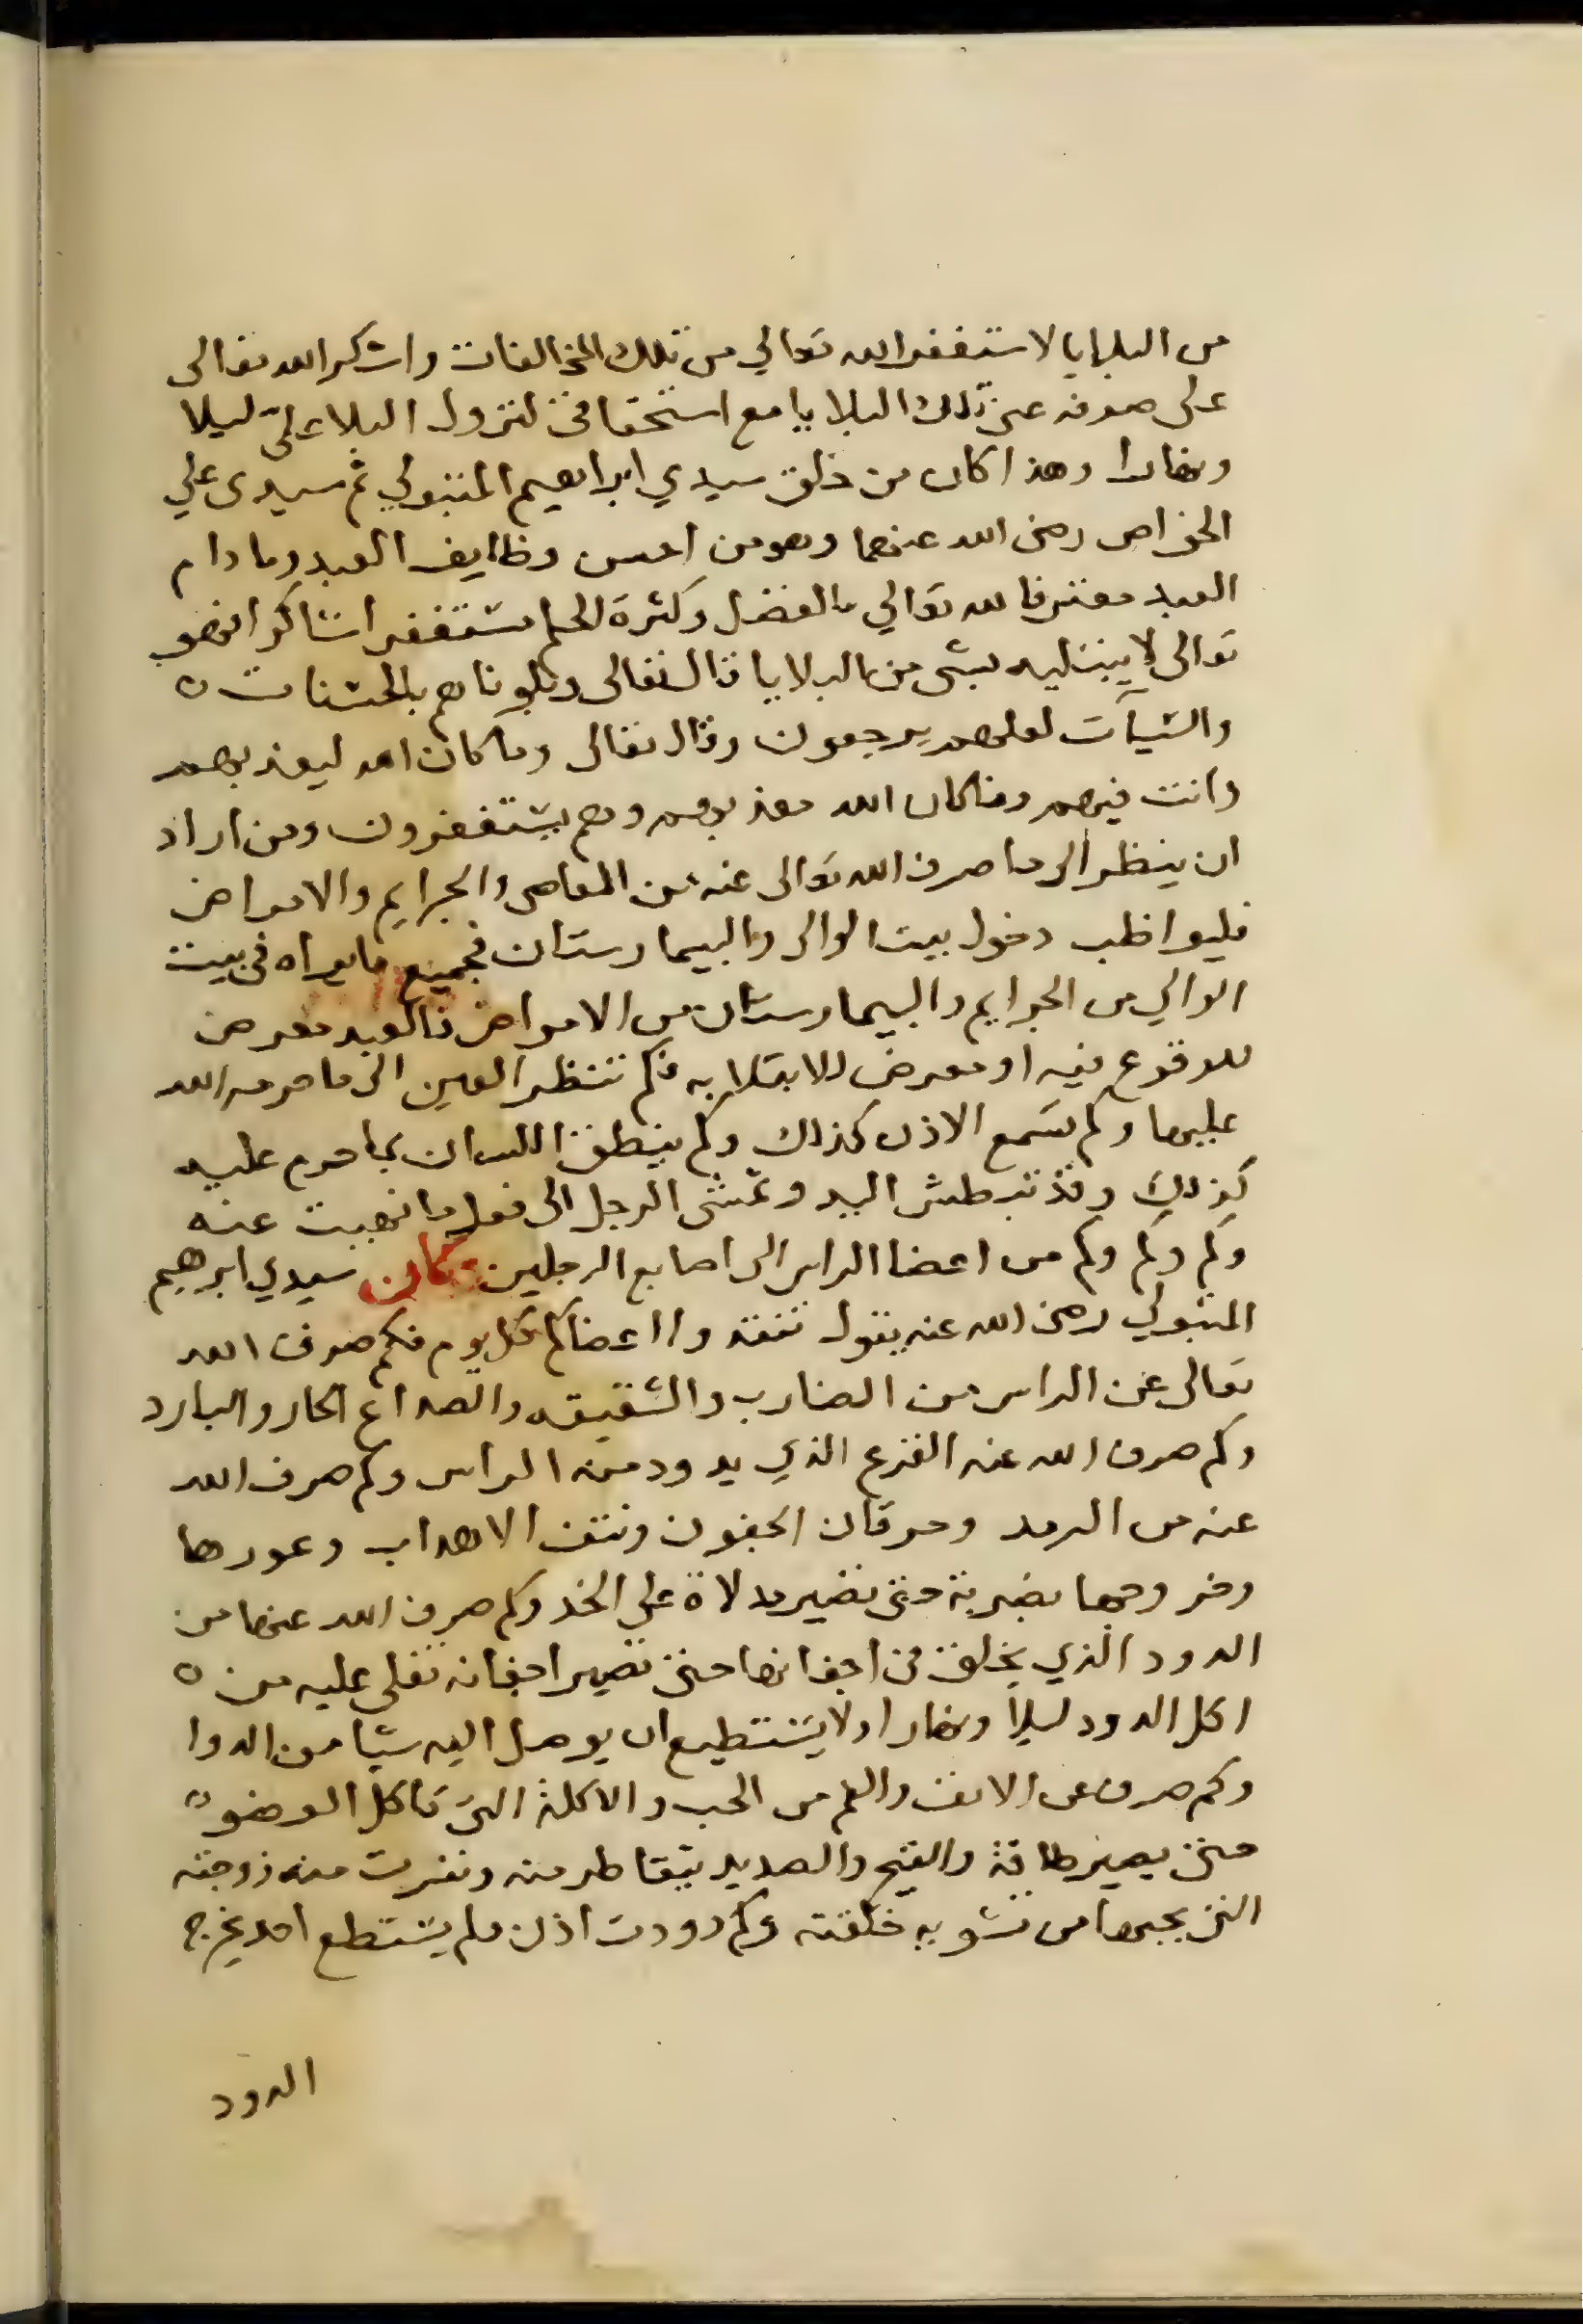 من البلايا لاستغفر الله تعالي من تلك المخالفات واشكر الله تعالى
على صرفه عني تلك البلايا مع استحقاقي لنزول البلا عليّ ليلا
ونهارا وهذا كان من خلق سيدي ابراهيم المتبولي ثم سيدى علي
الخواص رضى الله عنهما وهو من احسن وظايف العبد وما دام
العبد معترفا لله تعالي بالفضل وكثرة الحلم مستغفرا شاكرا فهو
تعالى لا يبتليه بشى من البلايا قال تعالى وبلوناهم بالحسنات
والسيآت لعلهم يرجعون وقال تعالى وما كان الله ليعذبهم
وانت فيهم وما كان الله معذبهم وهم يستغفرون ومن اراد
ان ينظر الى ما صرف الله تعالى عنه من المعاصى والجرايم والامراض
فليواظب دخول بيت الوالى والبيمارستان فجميع ما يراه فى بيت
الوالي من الجرايم والبيمارستان من الامراض فالعبد معرض
للوقوع فيه او معرض للابتلا به فكم تنظر العين الى ما حرمه الله
عليها وكم تسمع الاذن كذلك وكم ينطق اللسان بما حرم عليه
كذلك وقد تبطش اليد وتمشى الرجل الى فعل ما نهيت عنه
وكم وكم وكم من اعضا الراس الى اصابع الرجلين وكان سيدي ابرهيم
المتبولي رضى الله عنه يقول تفقدوا اعضاكم كل يوم فكم صرف الله
تعالى عن الراس من الضارب والشقيقه والصداع الحار والبارد
وكم صرف الله عنه القرع الذي يدود منه الراس وكم صرف الله
عنه من الرمد وحرقان الجفون ونتف الاهداب وعورها
وخروجها بضربة حتى تصير مدلاة على الخد وكم صرف الله عنها من
الدود الذي يخلق فى اجفانها حتى تصير اجفانه تغلى عليه من
اكل الدود ليلا ونهارا ولا يستطيع ان يوصل اليه شيا من الدوا
وكم صرف عن الانف والفم من الحب والاكلة التى تاكل العضو
حتى يصير طاقة والقيح والصديد يتقاطر منه ونفرت منه زوجته
التى يحبها من تشويه خلقته وكم دودت اذن فلم يستطع احد يخرج
الدود